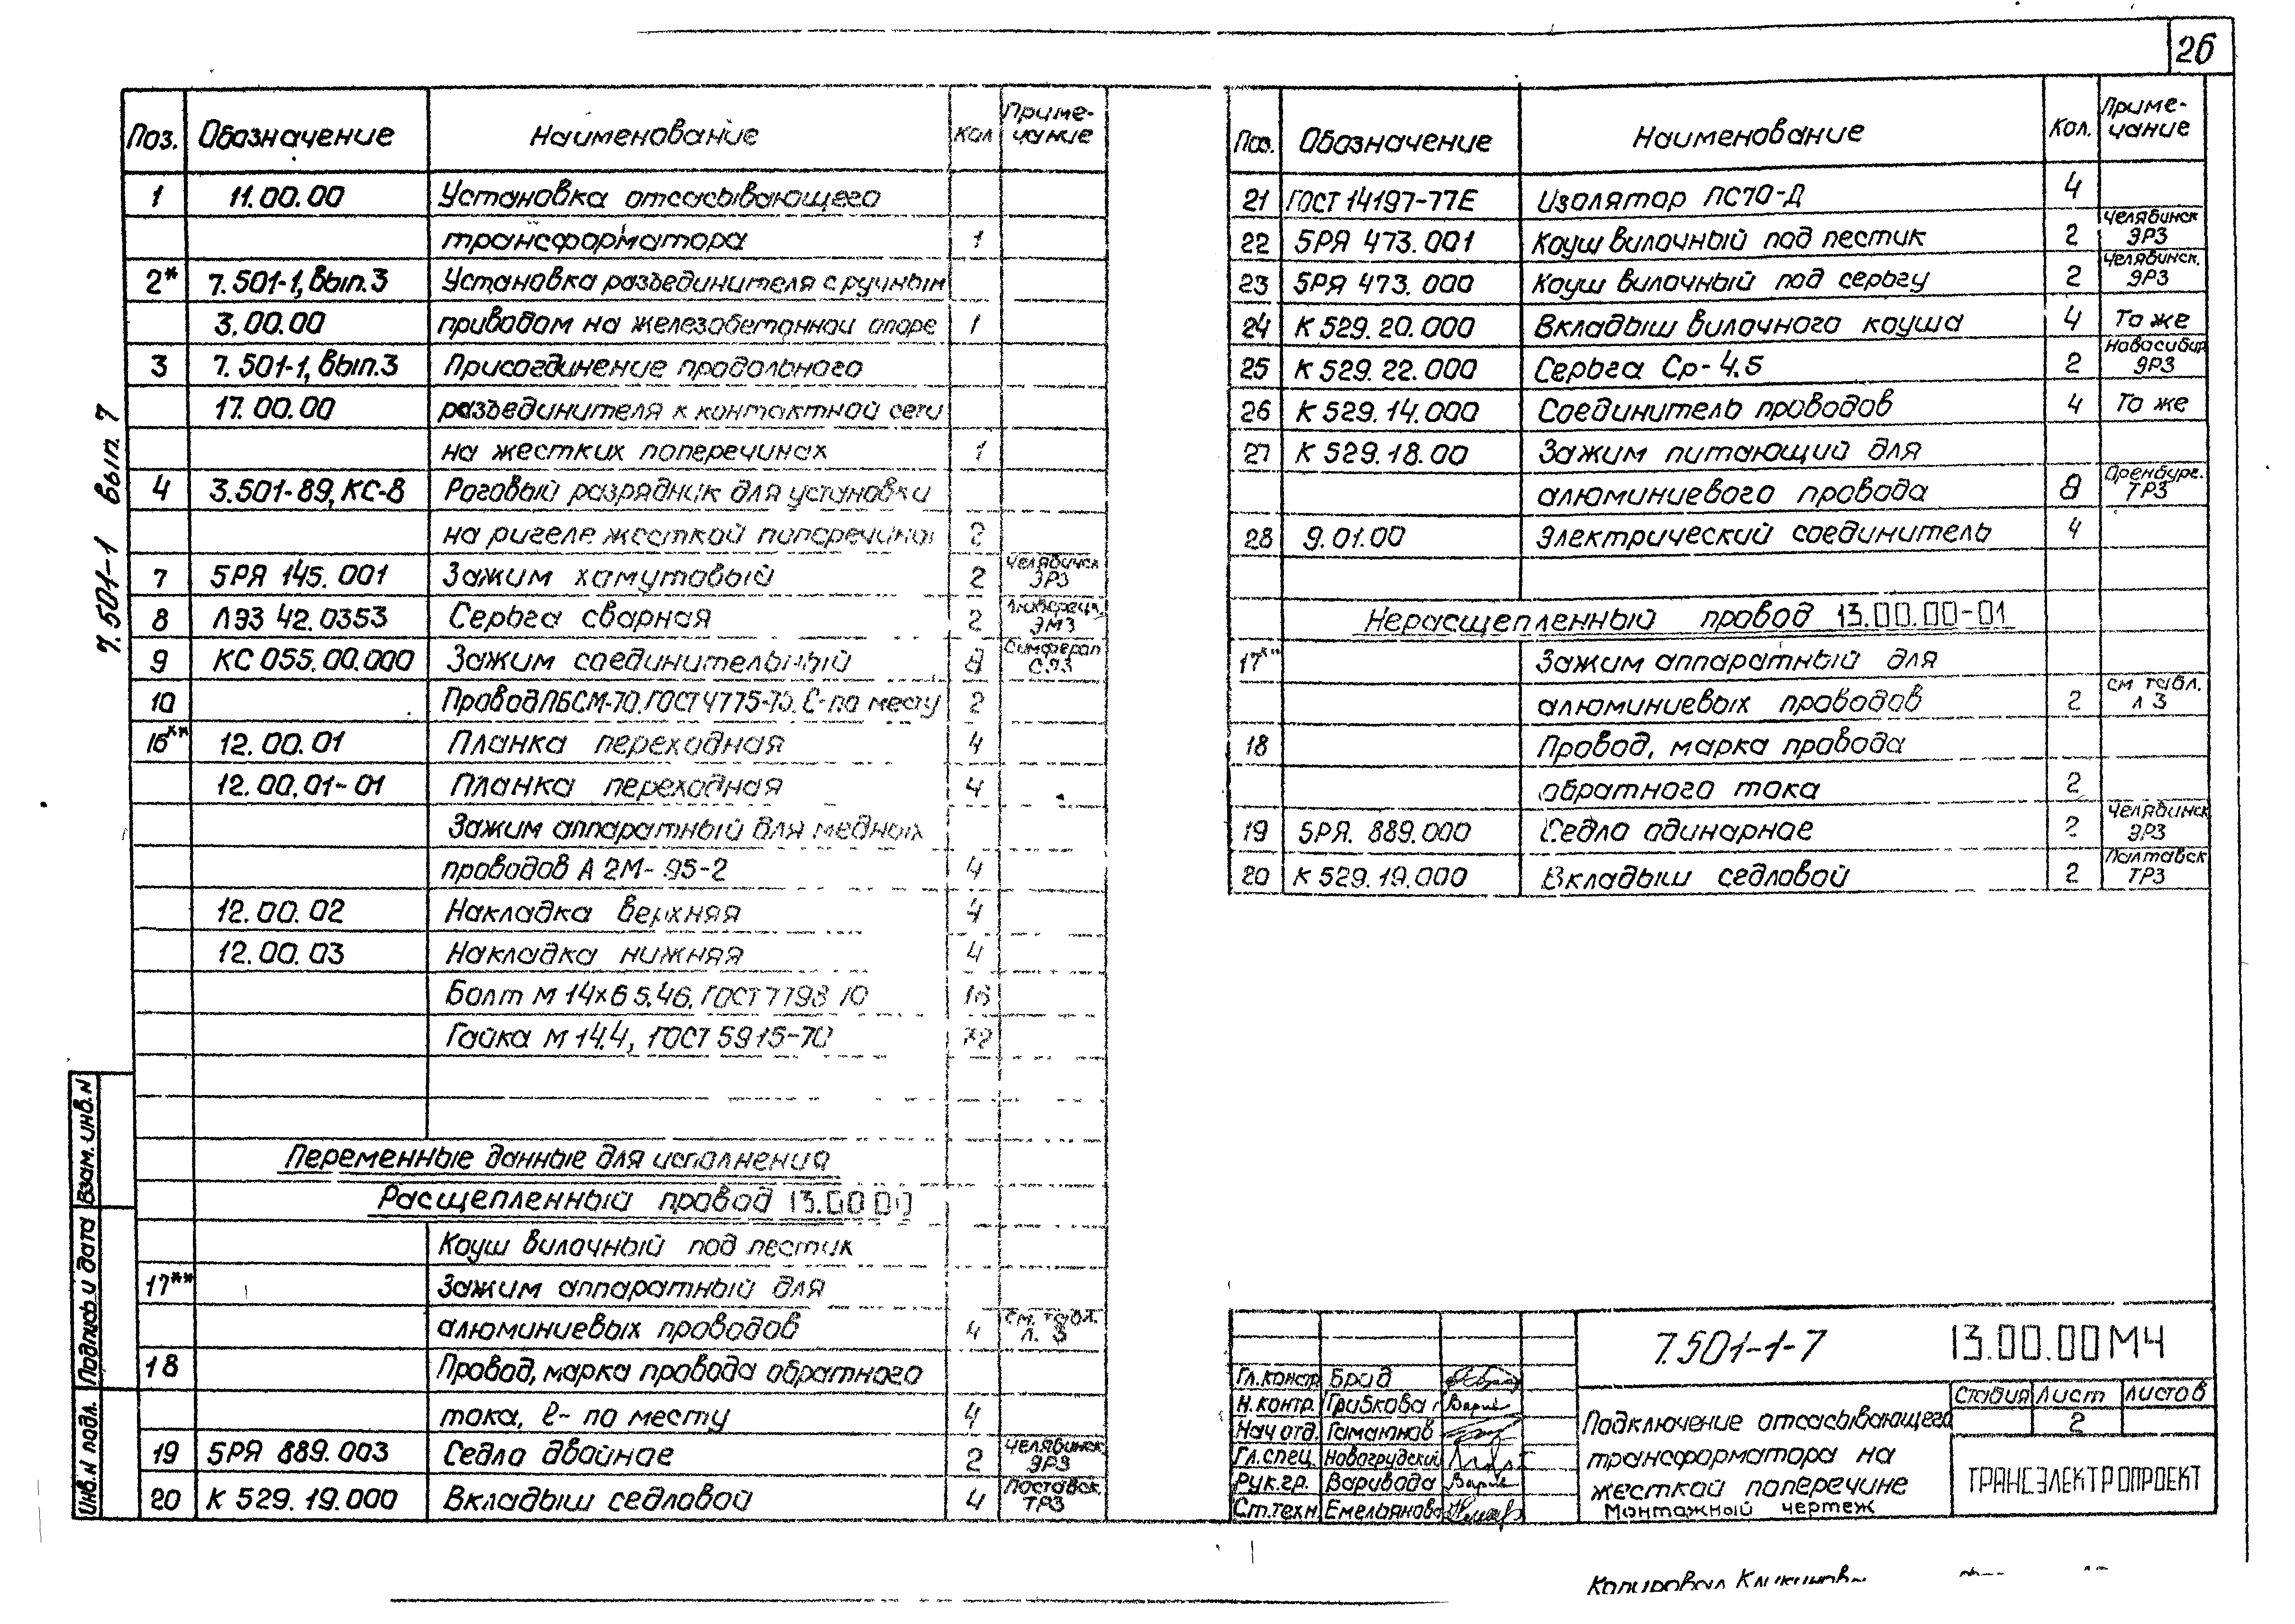 26
Поз. Обозначение Наименование Кол Приме-
чание
1 11.00.00 Установка отсасывающего
трансформатора 1
2* 7.501-1, вып.3 Установка разъединителя с ручным
3.00.00 приводом на железобетонной опоре 1
3 7.501-1, вып.3 Присоединение продольного
17.00.00 разъединителя к контактной сети
на жестких поперечинах 1
4 3.501-89, КС-8 Роговый разрядник для установки
на ригеле жесткой поперечины 2
7 5РЯ 145.001 Зажим хомутовый 2 Челябинск ЭРЗ
8 ЛЭЗ 42.0353 Серьга сварная 2 ЭМЗ
9 КС 055.00.000 Зажим соединительный 8 Симфероп
10 Провод ПБСМ-70, ГОСТ 4775-75, ℓ-по месту 2
16** 12.00.01 Планка переходная 4
12.00.01-01 Планка переходная 4
Зажим аппаратный для медных
проводов А 2М-95-2 4
12.00.02 Накладка верхняя 4
12.00.03 Накладка нижняя 4
Болт М 14×65.46, ГОСТ 7798-70 16
Гайка М 14.4, ГОСТ 5915-70 32
Переменные данные для исполнения
Расщепленный провод 13.00.00
Коуш вилочный под пестик
17** Зажим аппаратный для
алюминиевых проводов 4 см. табл. л. 3
18 Провод, марка провода обратного
тока, ℓ- по месту 4
19 5РЯ 889.003 Седло двойное 2 Челябинск ЭРЗ
20 К 529.19.000 Вкладыш седловой 4 ТРЗ
Поз. Обозначение Наименование Кол. Приме-
чание
21 ГОСТ 14197-77Е Изолятор ПС70-Д 4
22 5РЯ 473.001 Коуш вилочный под пестик 2 Челябинск ЭРЗ
23 5РЯ 473.000 Коуш вилочный под серьгу 2 Челябинск. ЭРЗ
24 К 529.20.000 Вкладыш вилочного коуша 4 То же
25 К 529.22.000 Серьга Ср-4.5 2 Новосибир ЭРЗ
26 К 529.14.000 Соединитель проводов 4 То же
27 К 529.18.00 Зажим питающий для
алюминиевого провода 8 Оренбург. ТРЗ
28 9.01.00 Электрический соединитель 4
Нерасщепленный провод 13.00.00-01
17** Зажим аппаратный для
алюминиевых проводов 2 см табл. л 3
18 Провод, марка провода
обратного тока 2
19 5РЯ. 889.000 Седло одинарное 2 Челябинск ЭРЗ
20 К 529.19.000 Вкладыш седловой 2 Полтавск ТРЗ
7.501-1 вып. 7
Инв.N подл. Подпись и дата Взам.инв.N
Гл.констр Брод
Н.контр. Грибкова
Нач отд. Гамаюнов
Гл.спец Новогрудский
Рук.гр. Варивода
Ст.техн Емельянова
7.501-1-7 13.00.00МЧ
Подключение отсасывающего
трансформатора на
жесткой поперечине
Монтажный чертеж
Стадия Лист Листов
2
ТРАНСЭЛЕКТРОПРОЕКТ
Копировал